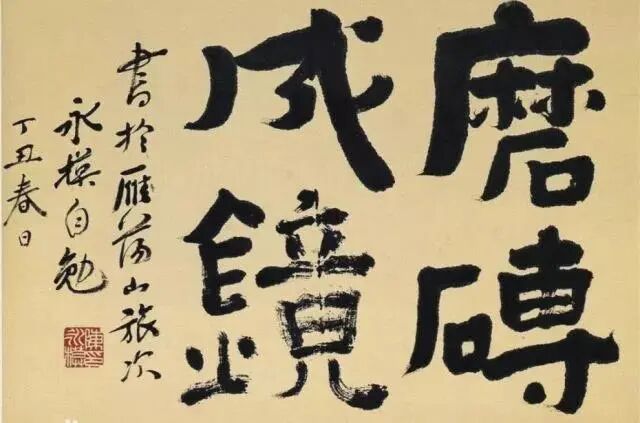 磨磚
成鏡
書於雁蕩山旅次
永模自勉
丁丑春日
陳永模